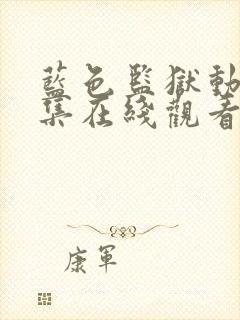 藍色監獄動
集在綫觀看
康軍